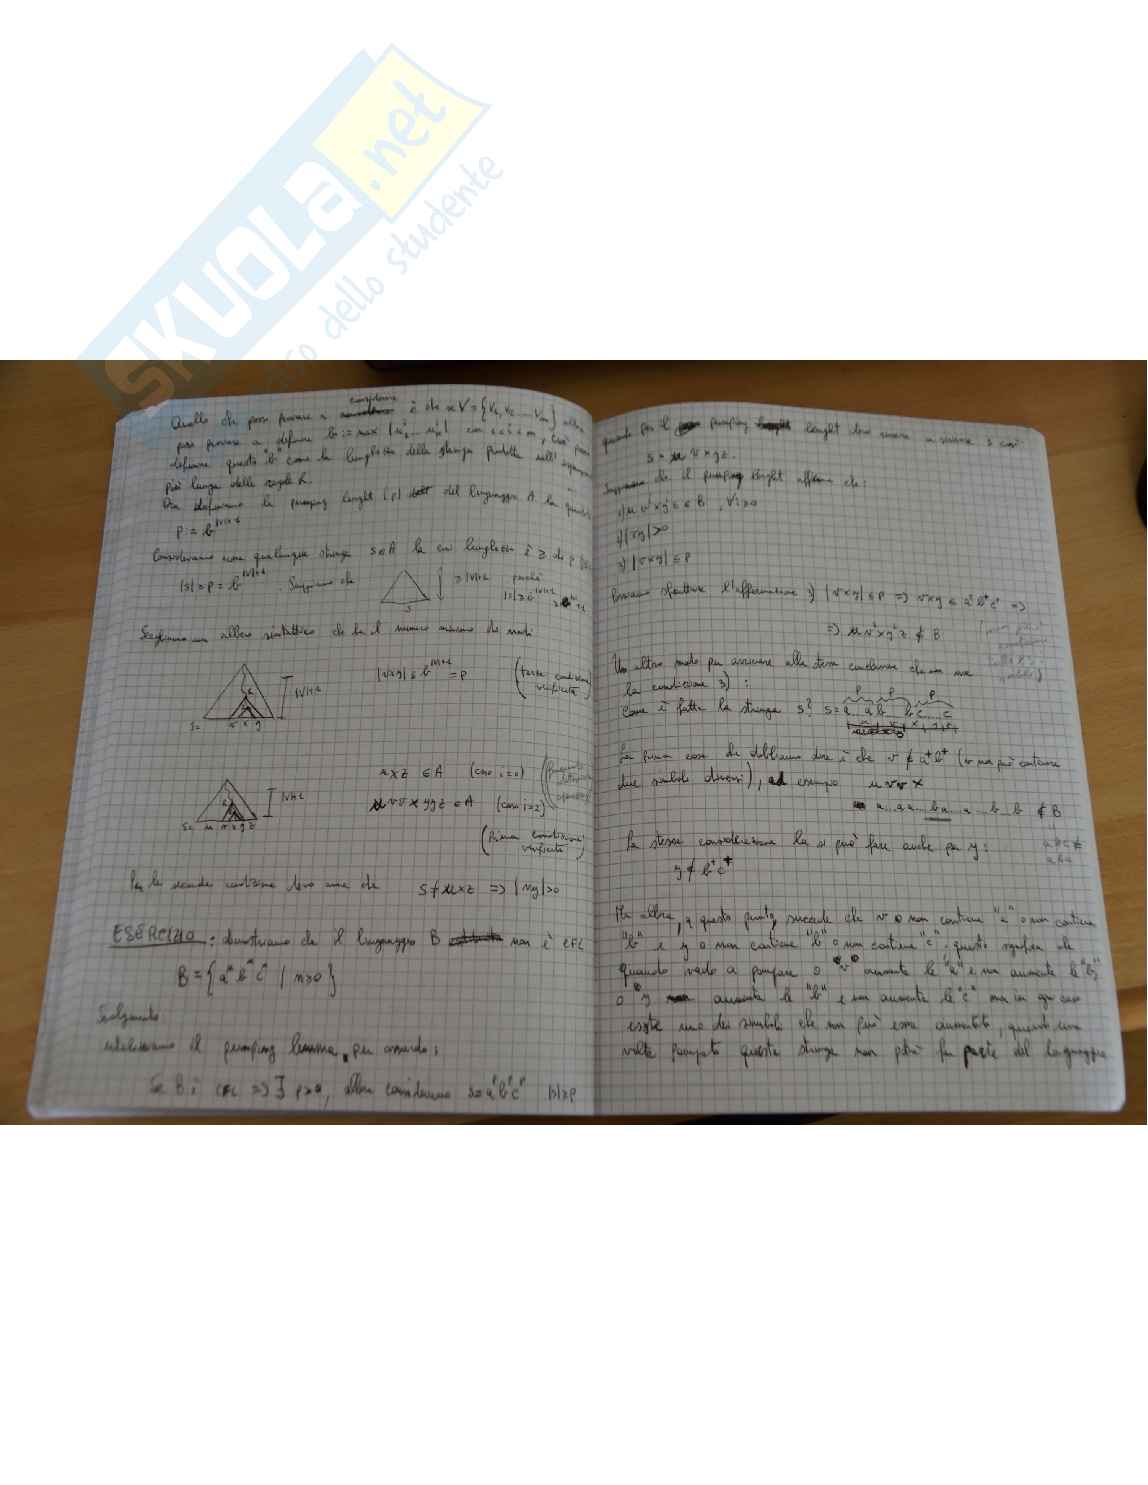 SKUOLA.net
dello studente
Quello che posso provare a considerare è che se V = {V1, V2 ... Vm} allora
posso provare a definire b := max
definire questo "b" come la lunghezza della stringa prodotta
più lunga delle regole R.
Ora definiamo la pumping lenght (p) del linguaggio A la quantità
P = b^|V|+2
Consideriamo una qualunque stringa s ∈ A la cui lunghezza è ≥ di p
|s| ≥ p = b^|V|+2 . Supponiamo che
≥ |V|+2 perché
s
Scegliamo un albero sintattico che ha il numero minimo di nodi
|V|+2
|vxy| ≤ b^|V|+2 = p
(terza condizione verificata)
s= v x y
uxz ∈ A (caso i=0)
|V|+2
uvvxyyz ∈ A (caso i=2)
s= u v x y z
(Prima condizione verificata)
Per la seconda condizione devo dire che s ≠ uxz => |vy|>0
ESERCIZIO: dimostriamo che il linguaggio B non è CFL
B = {a^n b^n c^n | n≥0}
Svolgimento
utilizziamo il pumping lemma, per assurdo:
Se B è CFL => ∃ p>0, allora consideriamo s=a^p b^p c^p |s|≥p
quando per il pumping lenght devo scrivere s così:
s = u v x y z.
che il pumping lenght afferma che:
1) u v^i x y^i z ∈ B , ∀i≥0
2) |vy|>0
3) |vxy| ≤ p
Possiamo sfruttare l'affermazione 3) |vxy| ≤ p => vxy ∉ a+b+c+ =>
=> u v^2 x y^2 z ∉ B
Un altro modo per arrivare alla stessa conclusione che non usa
la condizione 3) :
Come è fatta la stringa s? s= a...a b...b c...c
p p p
La prima cosa che dobbiamo dire è che v ∉ a+b+ (v non può contenere
due simboli diversi), ad esempio u v v x
a...aa...ba...a...b...b ∉ B
La stessa considerazione la si può fare anche per y:
y ∉ b+c+
Ma allora, a questo punto, succede che v o non contiene "a" o non contiene
"b" e y o non contiene "b" o non contiene "c"; questo significa che
quando vado a pompare o "v" aumenta le "a" e non aumenta le "b"
o "y" aumenta le "b" e non aumenta le "c" ma in ogni caso
esiste uno dei simboli che non può essere aumentato, quindi una
volta pompata questa stringa non potrà far parte del linguaggio